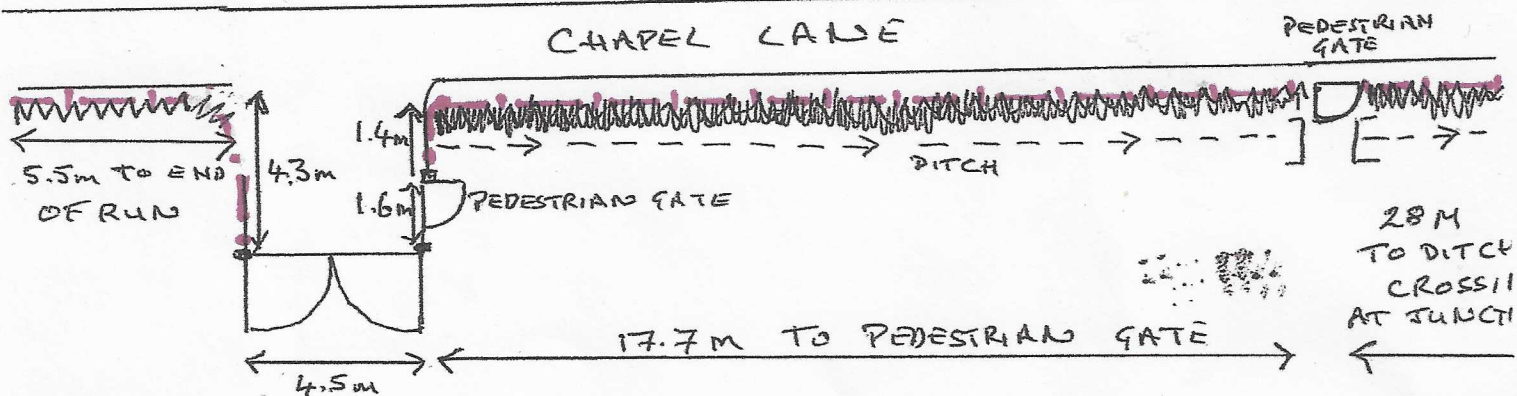 CHAPEL LANE
PEDESTRIAN
GATE
5.5m TO END
OF RUN
4.3m
1.4m
1.6m
PEDESTRIAN GATE
DITCH
28M
TO DITCH
CROSSI
AT JUNCTI
17.7m TO PEDESTRIAN GATE
4.5m